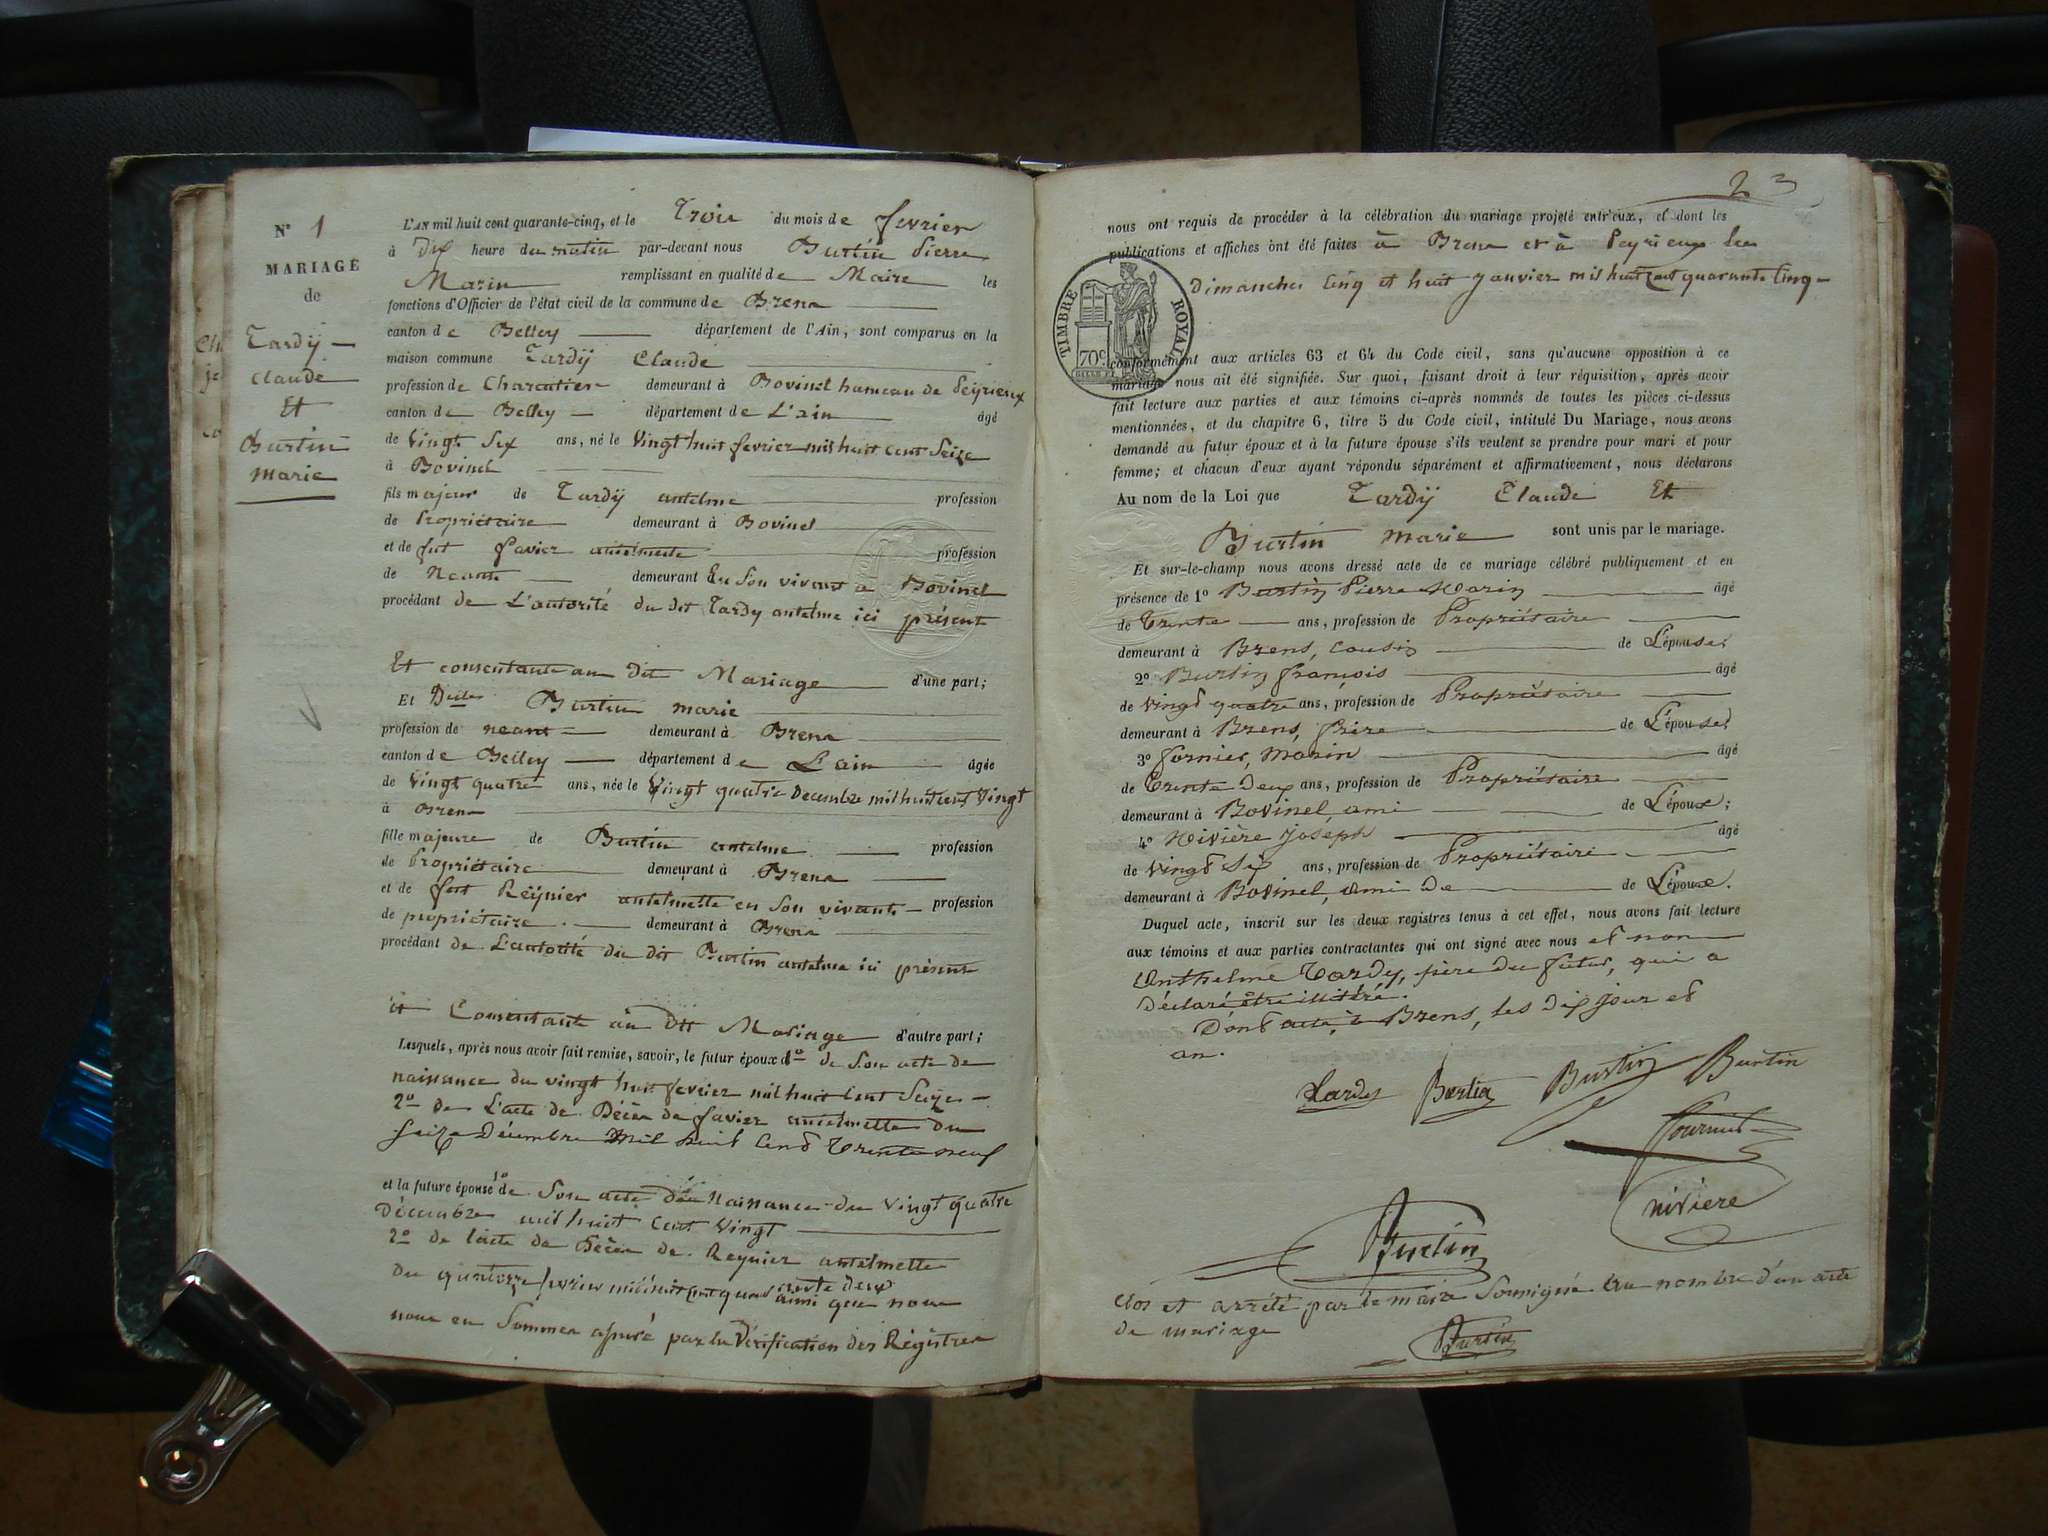 N° 1
MARIAGE
de
Tardÿ
Claude
Et
Burtin
Marie
L'AN mil huit cent quarante-cinq, et le Trois du mois de fevrier
à Dix heure du matin par-devant nous Burtin Pierre
Marin remplissant en qualité de Maire les
fonctions d'Officier de l'état civil de la commune de Brens
canton de Belley département de l'Ain, sont comparus en la
maison commune Tardÿ Claude
profession de Charcutier demeurant à Bovinel hameau de Peÿrieux
canton de Belley département de L'ain âgé
de Vingt Six ans, né le Vingt huit fevrier mil huit cent Seize
à Bovinel
fils majeur de Tardÿ antelme profession
de Propriétaire demeurant à Bovinel
et de fut favier antelmette profession
de Neante demeurant En Son vivant a Bovinel
procédant de L'autorité du dit Tardy antelme ici présent
Et consentante au dit Mariage d'une part;
Et Dlle Burtin marie
profession de neant demeurant à Brens
canton de Belley département de L'ain âgée
de Vingt quatre ans, née le Vingt quatre Decembre mil huit cent Vingt
à Brens
fille majeure de Burtin antelme profession
de Propriétaire demeurant à Brens
et de fut Reÿnier antelmette en Son vivante profession
de propriétaire demeurant à Brens
procédant de L'autorité du dit Burtin antelme ici présent
et Consentante au Dit Mariage d'autre part;
Lesquels, après nous avoir fait remise, savoir, le futur époux 1o de Son acte de
naissance du vingt huit fevrier mil huit Cent Seize
2o de L'acte de Décès de favier antelmette du
Seize Décembre Mil huit Cent Trente neuf
et la future épouse 1o de Son acte De Naissance du Vingt quatre
Décembre mil huit Cent Vingt
2o de l'acte de Décès de Reynier antelmette
Du quatorze fevrier mil huit Cent quarante deux
ainsi que nous
nous en Sommes assuré par la Vérification des Régistres
23
nous ont requis de procéder à la célébration du mariage projeté entr'eux, et dont les
publications et affiches ont été faites à Brens et à Peyrieux les
Dimanches Cinq et huit Janvier mil huit Cent quarante Cinq
TIMBRE ROYAL
70c
conformément aux articles 63 et 64 du Code civil, sans qu'aucune opposition à ce
mariage nous ait été signifiée. Sur quoi, faisant droit à leur réquisition, après avoir
fait lecture aux parties et aux témoins ci-après nommés de toutes les pièces ci-dessus
mentionnées, et du chapitre 6, titre 5 du Code civil, intitulé Du Mariage, nous avons
demandé au futur époux et à la future épouse s'ils veulent se prendre pour mari et pour
femme; et chacun d'eux ayant répondu séparément et affirmativement, nous déclarons
Au nom de la Loi que Tardÿ Claude Et
Burtin Marie sont unis par le mariage.
Et sur-le-champ nous avons dressé acte de ce mariage célébré publiquement et en
présence de 1o Burtin Pierre Marin âgé
de Trente ans, profession de Propriétaire
demeurant à Brens, Cousin de L'épouse;
2o Burtin françois âgé
de Vingt quatre ans, profession de Propriétaire
demeurant à Brens, frère de L'épouse;
3o fornier, Marin âgé
de Trente Deux ans, profession de Propriétaire
demeurant à Bovinel, ami de L'époux;
4o Nivière Joseph âgé
de Vingt Six ans, profession de Propriétaire
demeurant à Bovinel, ami de de L'époux.
Duquel acte, inscrit sur les deux registres tenus à cet effet, nous avons fait lecture
aux témoins et aux parties contractantes qui ont signé avec nous et non
Anthelme Tardy, père du futur, qui a
Déclaré être illitéré.
Dont acte, à Brens, les Dix jour et
an.
Tardy Burtin Burtin Burtin
Fournier
niviere
Burtin
Clos et arrêté par le maire Soussigné au nombre d'un acte
de mariage
Burtin